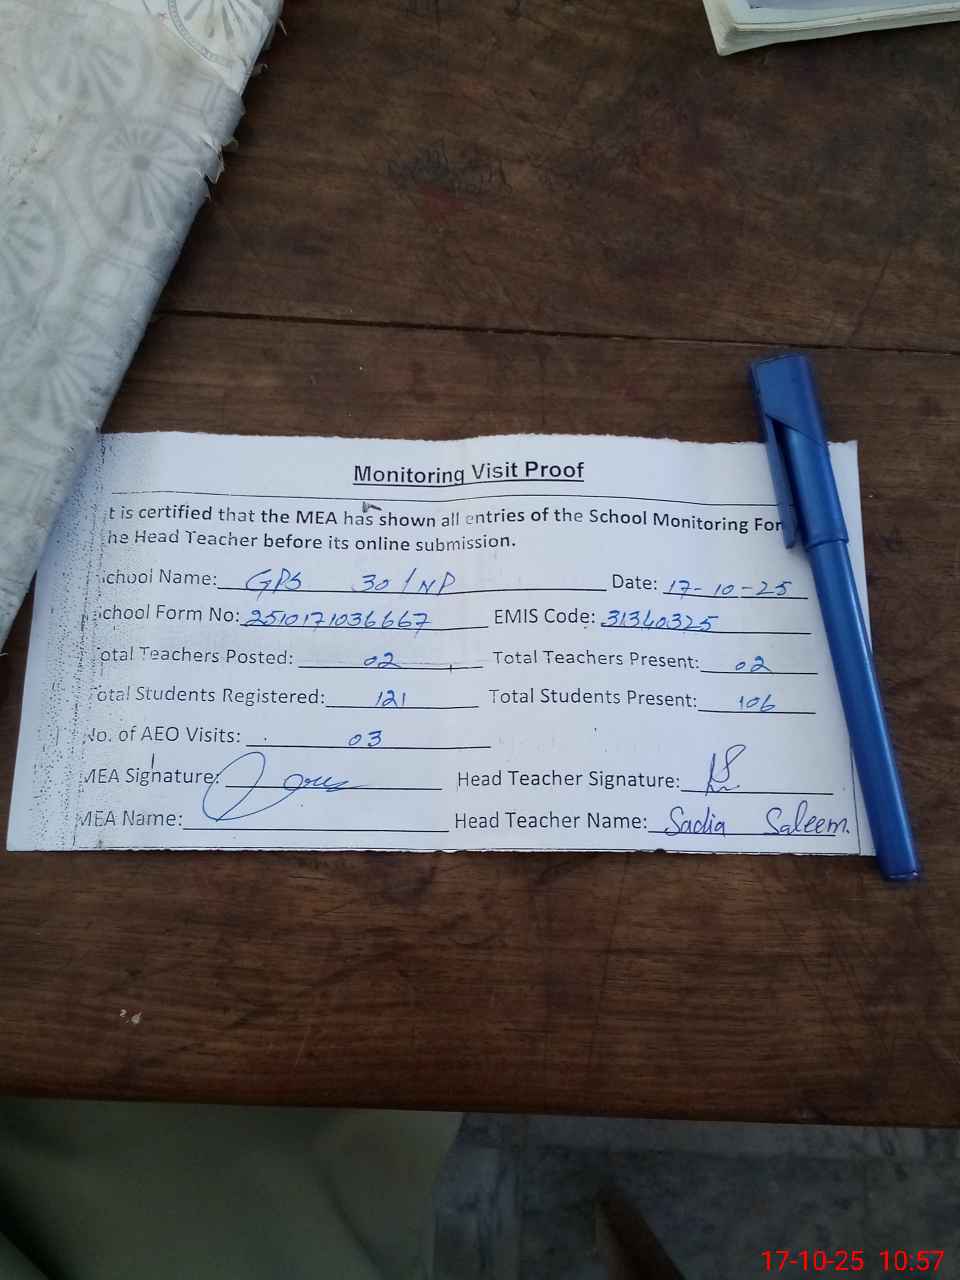 Monitoring Visit Proof
t is certified that the MEA has shown all entries of the School Monitoring For
he Head Teacher before its online submission.
chool Name: GPS 30/NP Date: 17-10-25
chool Form No: 2510171036667 EMIS Code: 31340325
otal Teachers Posted: 02 Total Teachers Present: 02
otal Students Registered: 121 Total Students Present: 106
No. of AEO Visits: 03
MEA Signature: Head Teacher Signature:
MEA Name: Head Teacher Name: Sadia Saleem.
17-10-25 10:57